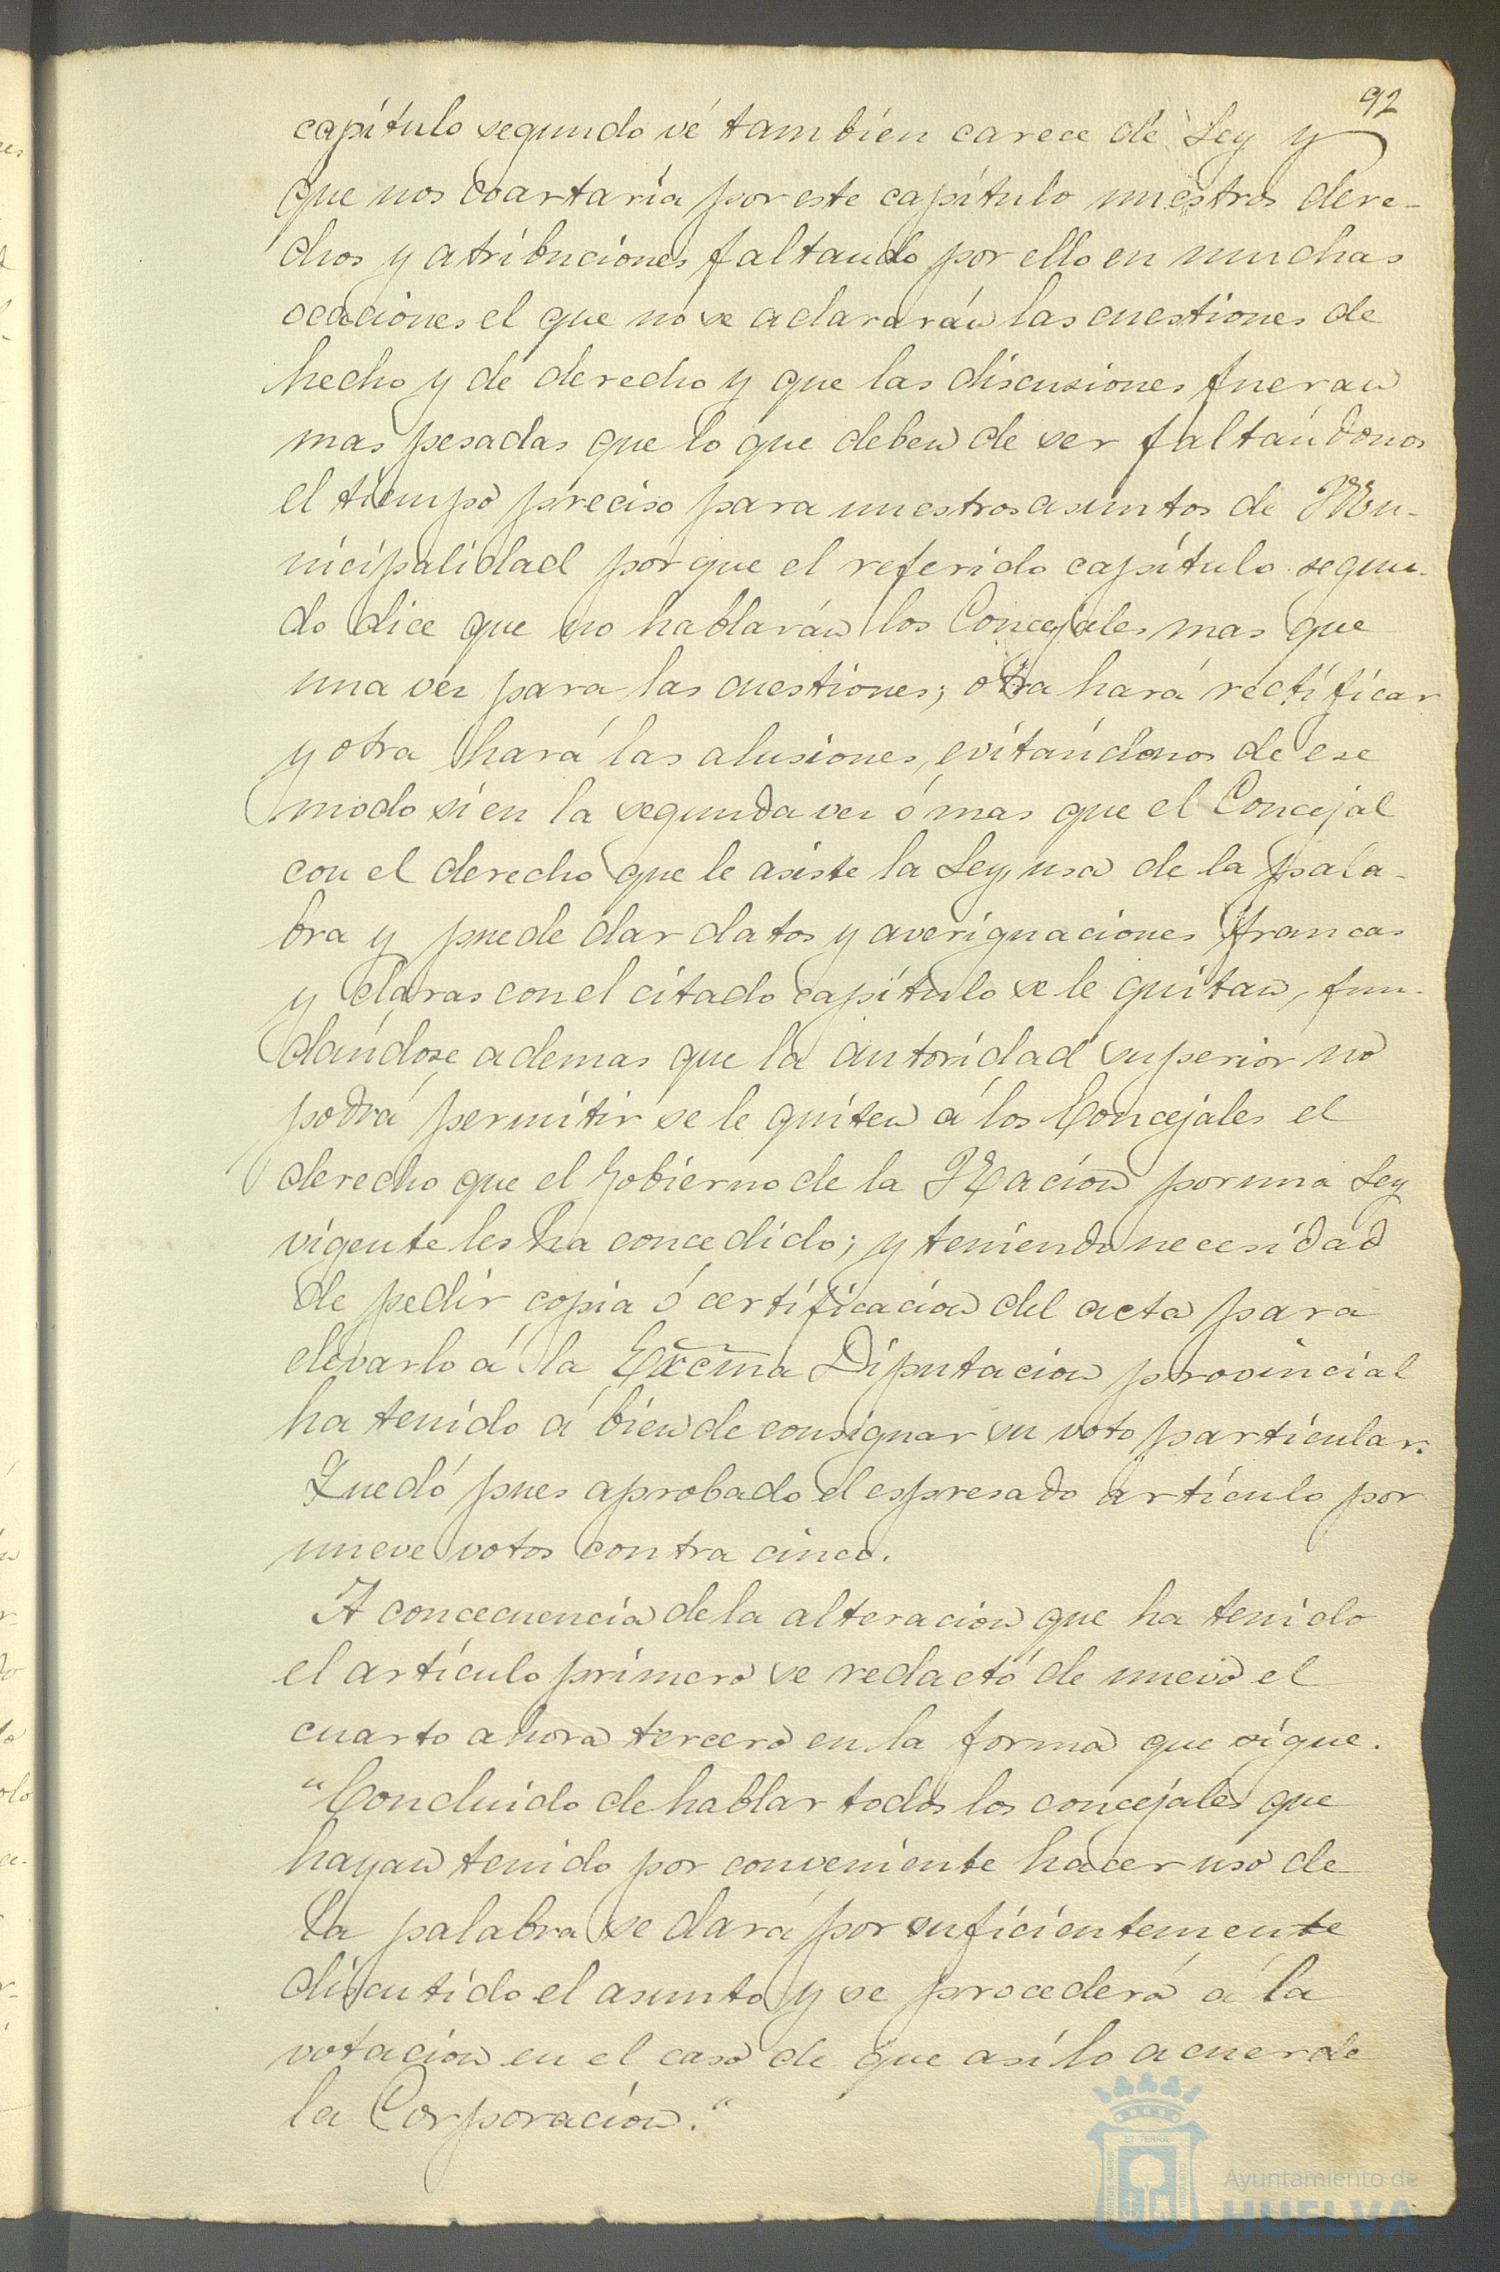 92
capítulo segundo sé tambien carece de Ley y
que nos coartaría por este capítulo nuestros dere-
chos y atribuciones faltando por ello en muchas
ocaciones el que no se aclararán las cuestiones de
hecho y de derecho y que las discusiones fueran
mas pesadas que lo que deben de ser faltándonos
el tiempo preciso para nuestros asuntos de Mu-
nicipalidad porque el referido capítulo segun-
do dice que no hablarán los Concejales mas que
una vez para las cuestiones; otra hará rectificar
y otra hará las alusiones, evitándonos de ese
modo si en la segunda vez ó mas que el Concejal
con el derecho que le asiste la Ley, usa de la pala-
bra y puede dar datos y averiguaciones francas
y claras con el citado capítulo se le quitan, fun-
dándose ademas que la autoridad superior no
podrá permitir se le quiten á los Concejales el
derecho que el Gobierno de la Nacion por una Ley
vigente les ha concedido; y teniendo necesidad
de pedir copia ó certificacion del acta para
elevarlo á la Excma Diputacion provincial
ha tenido á bien de consignar su voto particular.
Quedó pues aprobado el espresado artículo por
nueve votos contra cinco.
A concecuencia de la alteracion que ha tenido
el artículo primero se redactó de nuevo el
cuarto ahora tercero en la forma que sigue.
"Concluido de hablar todos los concejales que
hayan tenido por conveniente hacer uso de
la palabra se dará por suficientemente
discutido el asunto y se procederá á la
votacion en el caso de que así lo acuerde
la Corporacion."
Ayuntamiento de
HUELVA